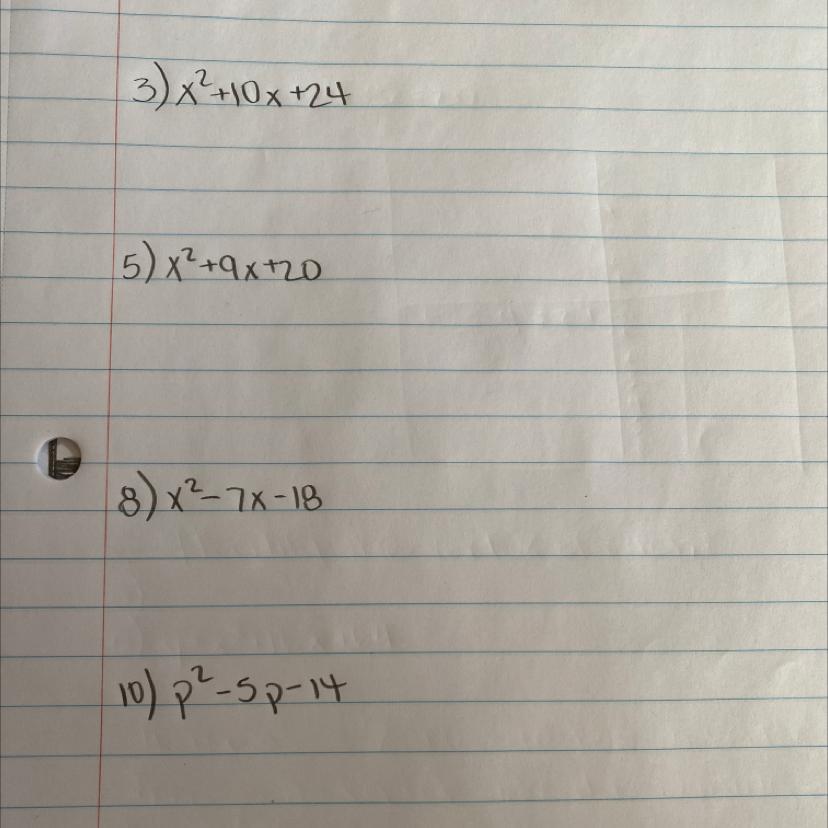 3) x²+10x+24
5) x²+9x+20
8) x²-7x-18
10) p²-5p-14